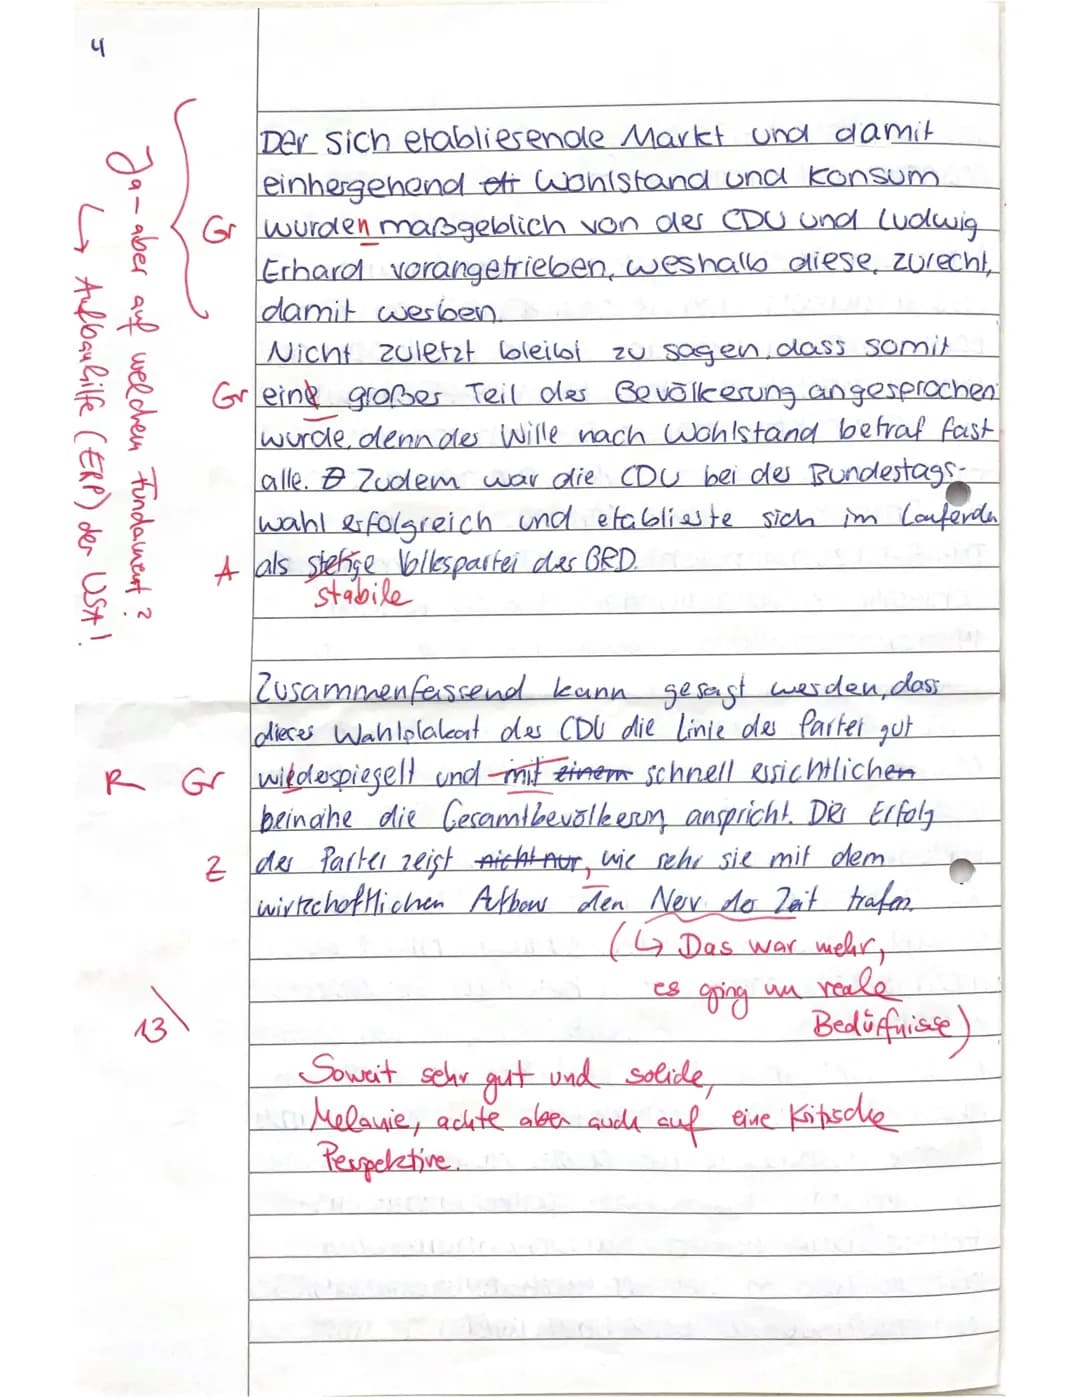 4
Der sich etablierende Markt und damit
einhergehend Wohlstand und Konsum
Gr wurden maßgeblich von der CDU und Ludwig
Erhard vorangetrieben, weshalb diese, zurecht,
damit werben.
Nicht zuletzt bleibt zu sagen, dass somit
Gr eine großer Teil der Bevölkerung angesprochen
wurde, denn der Wille nach Wohlstand betraf fast
alle. Zudem war die CDU bei der Bundestags-
wahl erfolgreich und etablierte sich im Laufenden
A als stetige Volkspartei der BRD.
stabile
Ja - aber auf welchem Fundament?
↳ Aufbauhilfe (ERP) der USA!
Zusammenfassend kann gesagt werden, dass
dieses Wahlplakat der CDU die Linie der Partei gut
R Gr wiederspiegelt und mit einem schnell ersichtlichen
beinahe die Gesamtbevölkerung anspricht. Der Erfolg
Z der Partei zeigt nicht nur, wie sehr sie mit dem
wirtschaftlichen Aufbau den Nerv der Zeit trafen.
(↳ Das war mehr,
es ging um reale
Bedürfnisse)
13
Soweit sehr gut und solide,
Melanie, achte aber auch auf eine kritische
Perspektive.